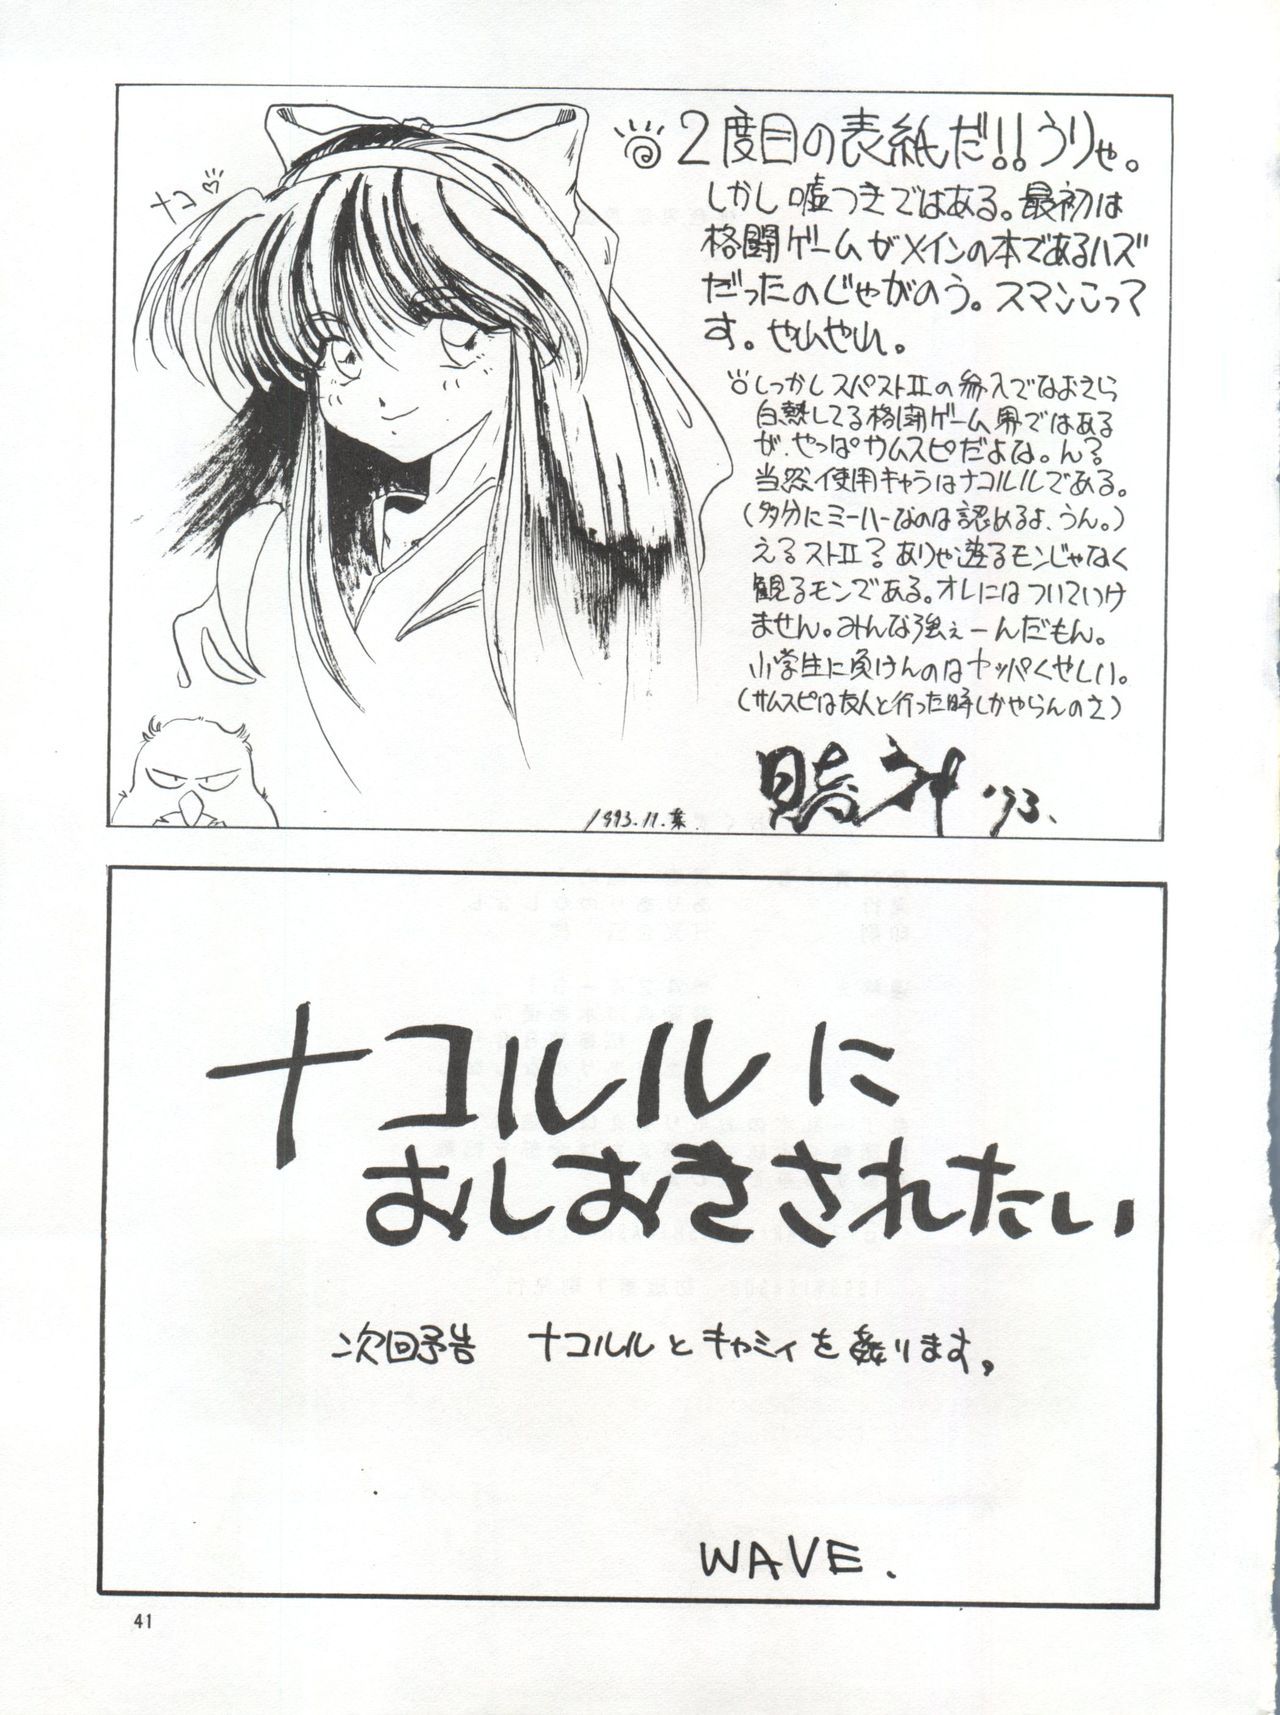 ナコ
2度目の表紙だ!!うりゃ。
しかし嘘つきではある。最初は
格闘ゲームがメインの本であるハズ
だったのじゃがのう。スマンこって
す。やいやい。
しっかしスパストⅡの参入でなおさら
白熱してる格闘ゲーム界ではある
が、やっぱサムスピだよな。ん?
当然使用キャラはナコルルである。
(多分にミーハーなのは認めるよ、うん。)
えるストⅡ?ありゃ遊るモンじゃなく
観るモンである。オレにはついていけ
ません。みんな強ぇーんだもん。
小学生に負けんのはヤッパくやしい。
(サムスピは友人と行った時しかやらんのさ)
'93.
1993.11.
ナコルルに
おしおきされたい
次回予告 ナコルルとキャミィを姦ります。
WAVE.
41